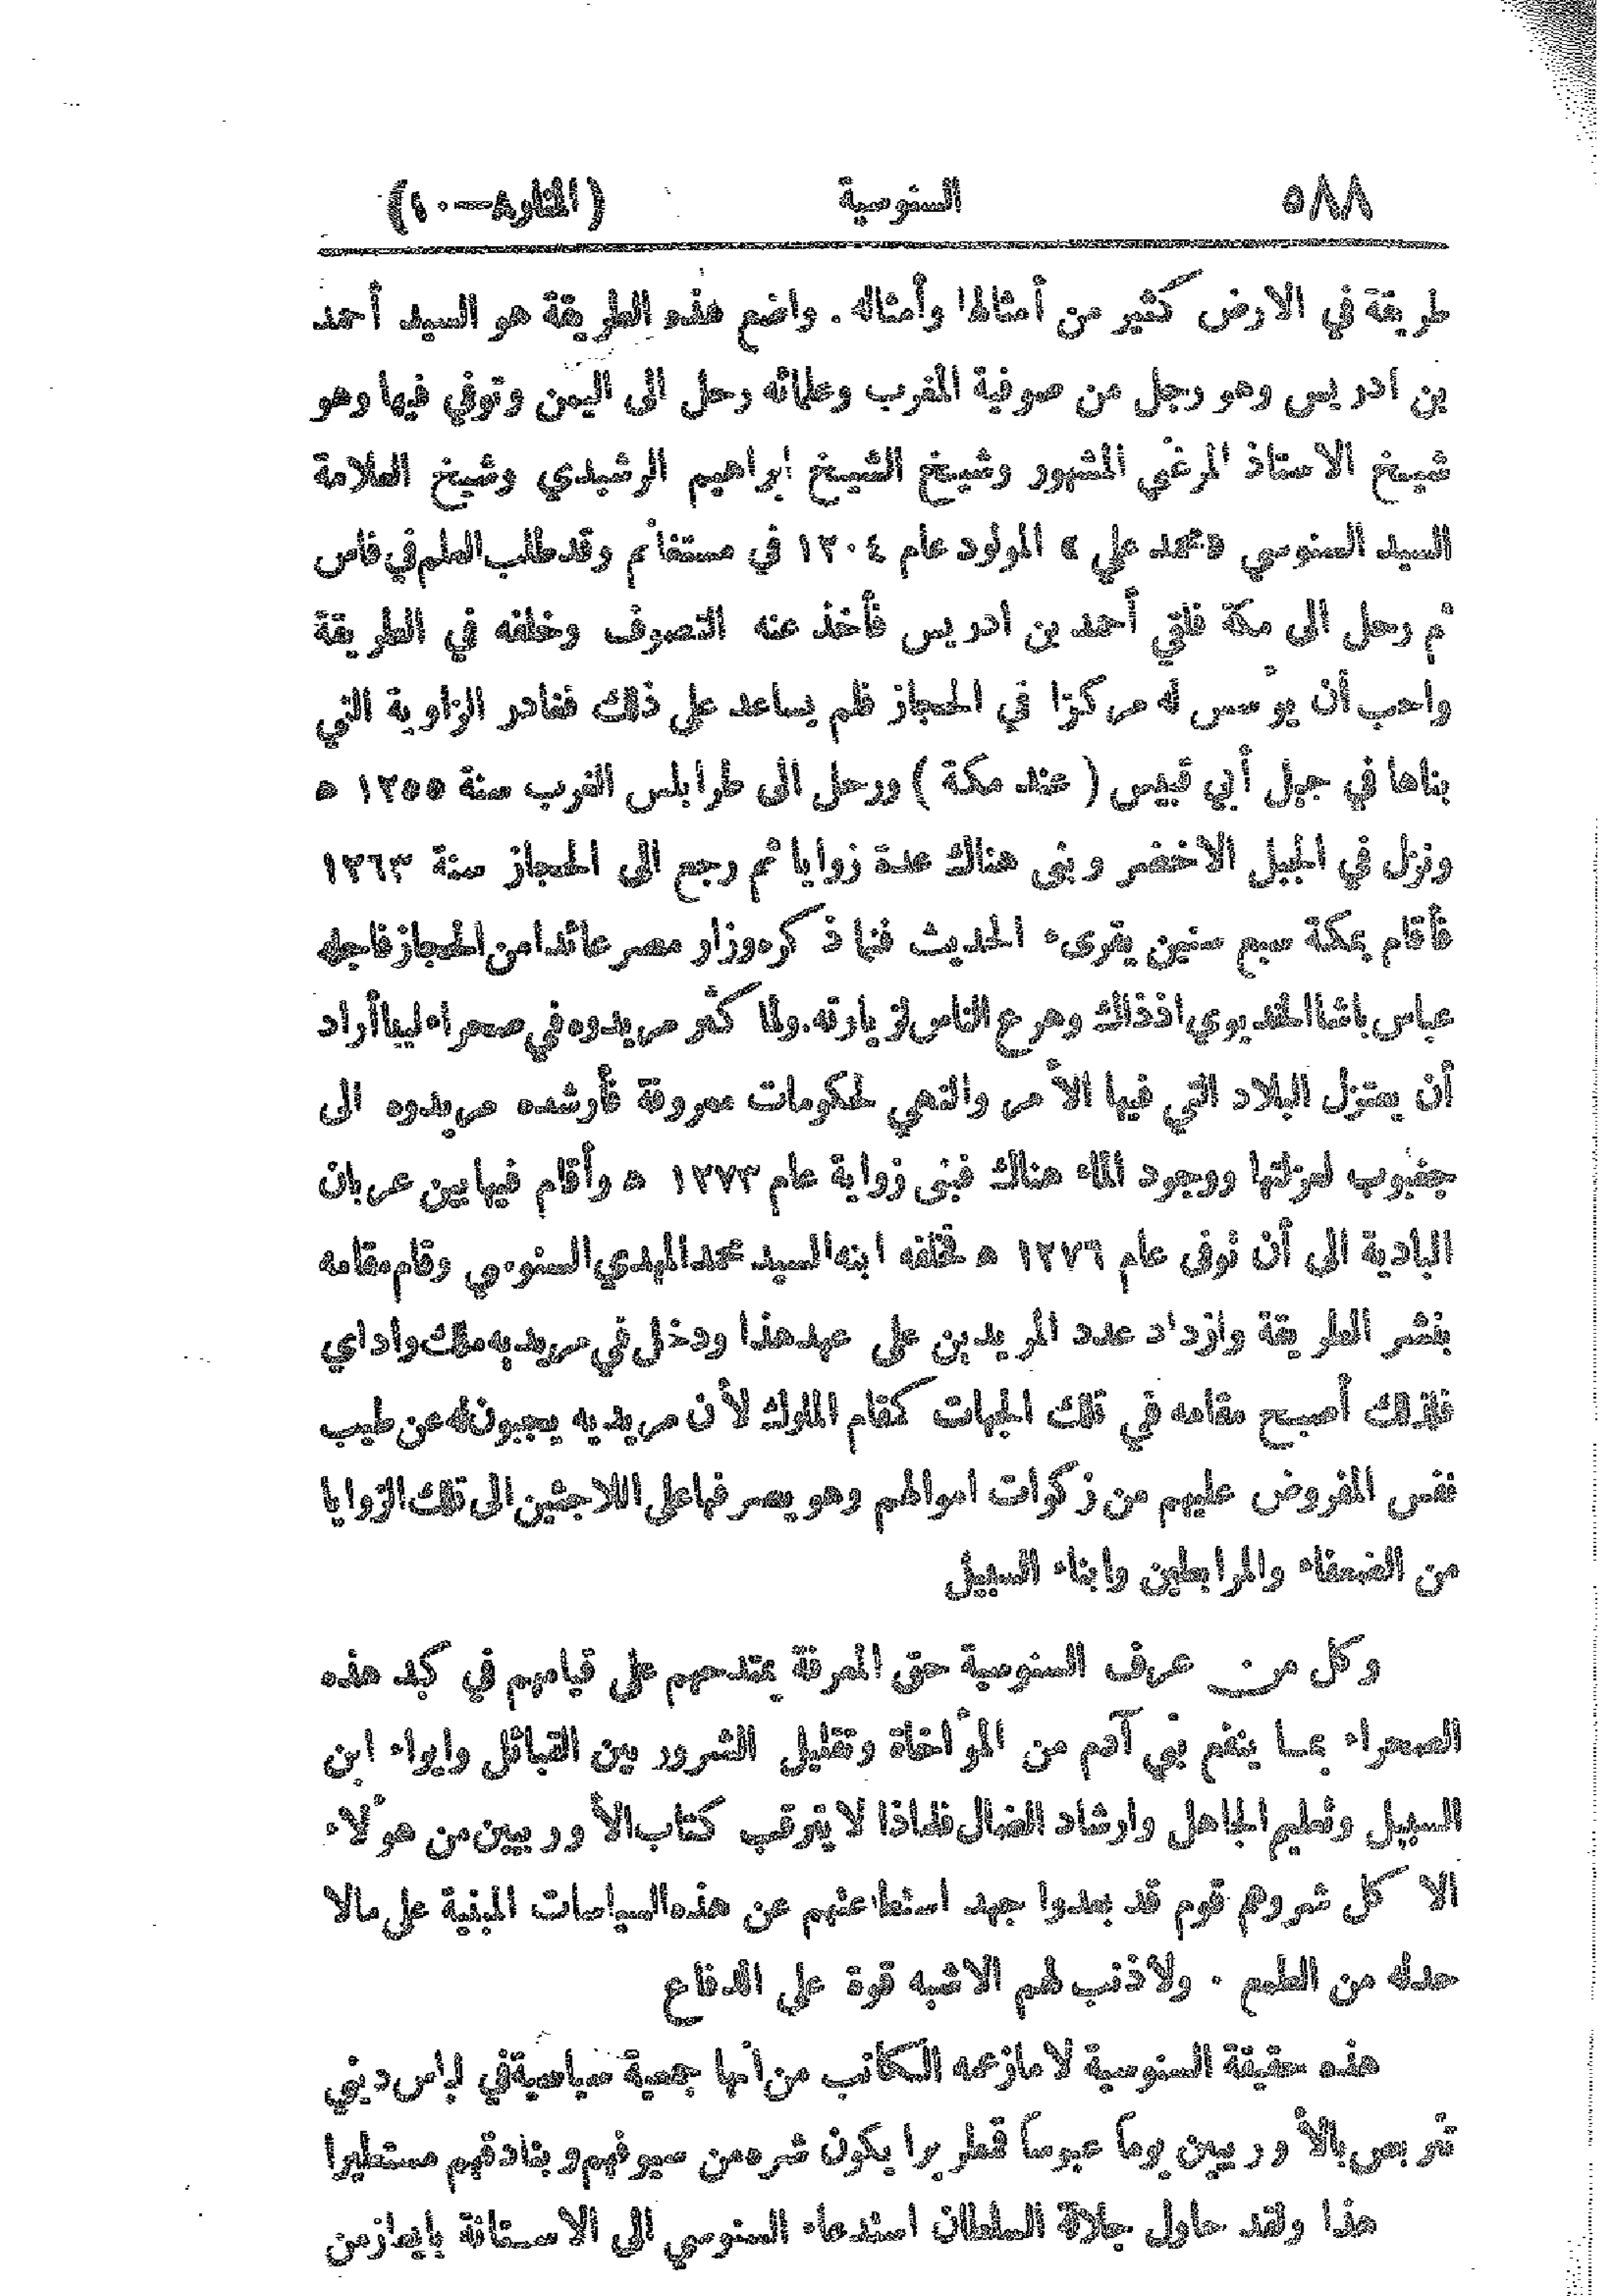 ٥٨٨ السنوسية (المنار ٨—١٠)
طريقة في الارض كثير من أمثالها وأمثاله. واضع هذه الطريقة هو السيد أحمد
بن ادريس وهو رجل من صوفية المغرب وعلمائه رحل الى اليمن وتوفي فيها وهو
شيخ الاستاذ المرغني المشهور وشيخ الشيخ ابراهيم الرشيدي وشيخ العلامة
السيد السنوسي «محمد علي» المولود عام ١٢٠٤ في مستغانم وقد طلب العلم في فاس
ثم رحل الى مكة فلقي أحمد بن ادريس فأخذ عنه التصوف وخلفه في الطريقة
واحب أن يؤسس له مركزا في الحجاز فلم يساعد على ذلك فغادر الزاوية التي
بناها في جبل أبي قبيس (عند مكة) ورحل الى طرابلس الغرب سنة ١٢٥٥ ه
ونزل في الجبل الاخضر وبنى هناك عدة زوايا ثم رجع الى الحجاز سنة ١٢٦٣
فأقام بمكة سبع سنين يقرىء الحديث فنما ذكره وزار مصر عائدا من الحجاز فاجله
عباس باشا الخديوي اذ ذاك وهرع الناس لزيارته. ولما كثر مريدوه في صحراء ليبيا أراد
أن يعتزل البلاد التي فيها الأمر والنهي لحكومات معروفة فأرشده مريدوه الى
جغبوب لعزلتها ووجود الماء هناك فبنى زواية عام ١٢٧٣ ه وأقام فيها بين عربان
البادية الى أن توفى عام ١٢٧٦ ه فخلفه ابنه السيد محمد المهدي السنوسي وقام مقامه
بنشر الطريقة وازداد عدد المريدين على عهد هذا ودخل في مريديه ملك واداي
فلذلك أصبح مقامه في تلك الجهات كمقام الملوك لأن مريديه يجبون له عن طيب
نفس المفروض عليهم من زكوات اموالهم وهو يصرفها على اللاجئين الى تلك الزوايا
من الضعفاء والمرابطين وابناء السبيل
وكل من عرف السنوسية حق المعرفة يمتدحهم على قيامهم في كبد هذه
الصحراء بما ينفع بني آدم من المؤاخاة وتقليل الشرور بين القبائل وايواء ابن
السبيل وتعليم الجاهل وارشاد الضال فلماذا لا يترقب كتاب الأوربيين من هؤلاء
الا كل شر وهم قوم قد بعدوا جهد استطاعتهم عن هذه السياسات المبنية على مالا
حد له من الطمع. ولا ذنب لهم الا شبه قوة على الدفاع
هذه حقيقة السنوسية لا ما زعمه الكاتب من انها جمعية سياسية في لباس ديني
تتربص بالأوربيين يوماً عبوساً قمطريرا يكون شره من سيوفهم وبنادقهم مستطيرا
هذا ولقد حاول جلالة السلطان استدعاء السنوسي الى الاستانة بايعاز من